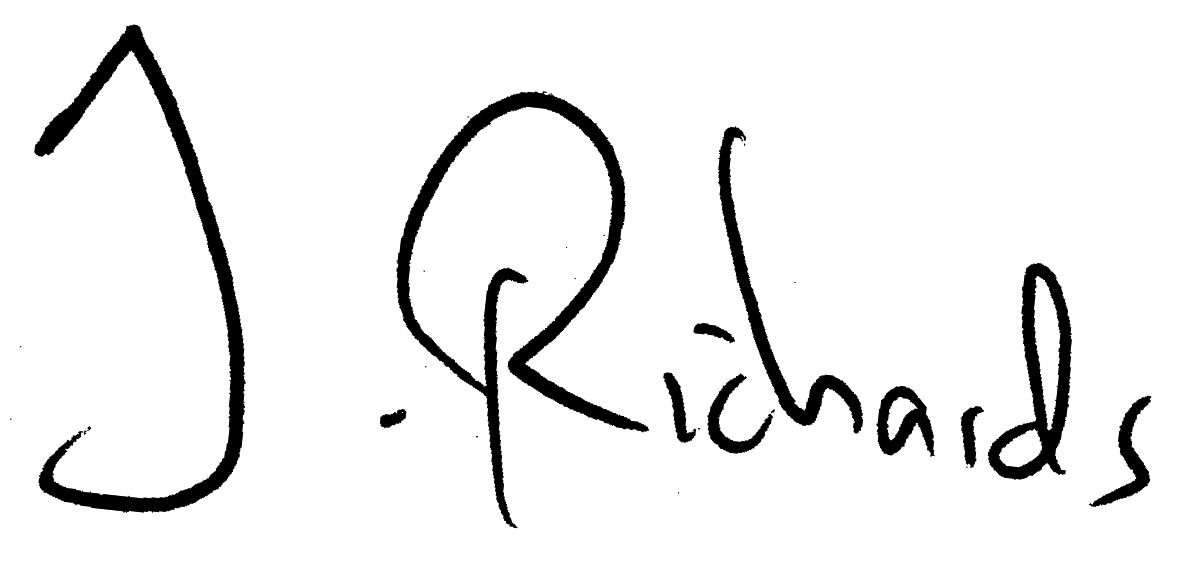 J. Richards